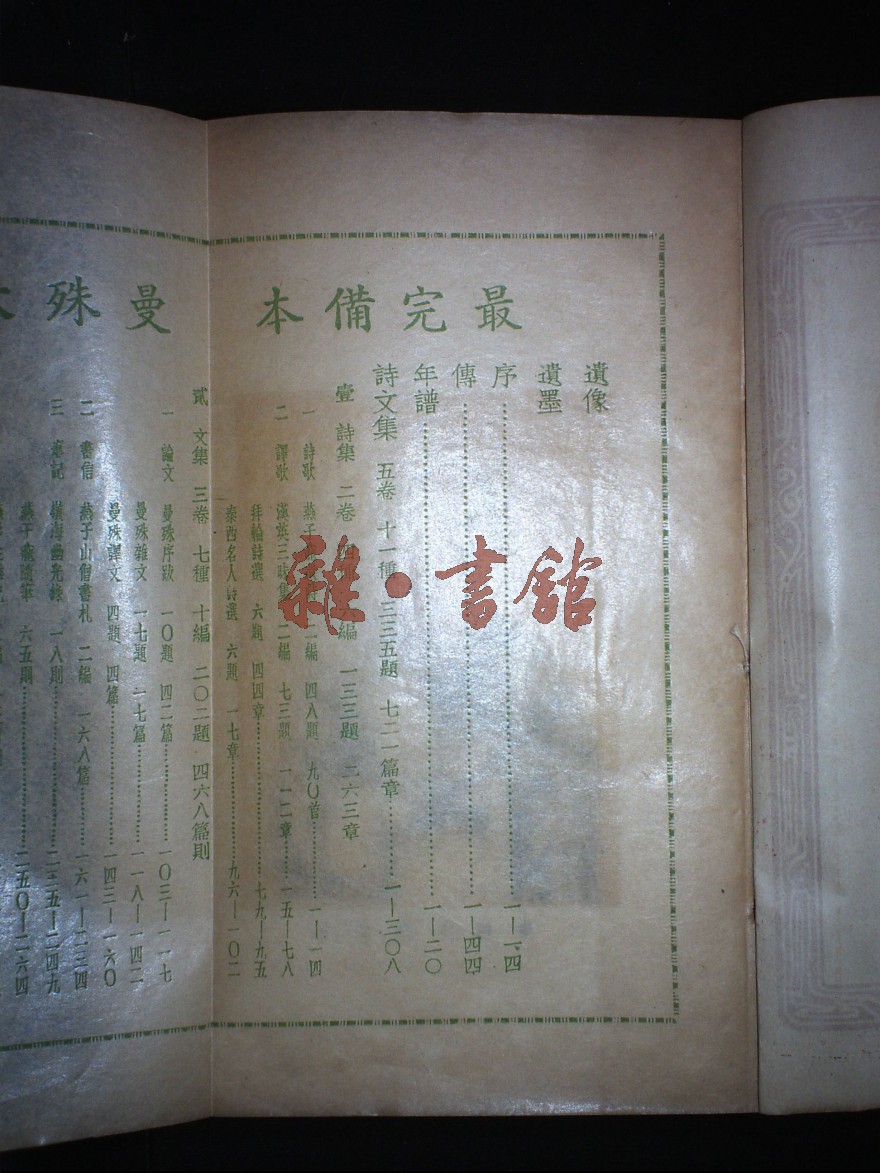 最完備本 曼殊
遺像
遺墨
序 一—一四
傳 一—四四
年譜 一—二〇
詩文集 五卷 十一種 三三五題 七二一篇章 一—三〇八
壹 詩集 二卷 編 一三三題 二六三章
一 詩歌 燕子 二編 四八題 九〇首 一—一四
二 譯歌 漢英三昧集 二編 七三題 一一二章 一五—七八
拜輪詩選 六題 四四章 七九—九五
泰西名人詩選 六題 一七章 九六—一〇二
貳 文集 三卷 七種 十編 二〇二題 四六八篇則
一 論文 曼殊序跋 一〇題 四二篇 一〇三—一一七
曼殊雜文 一七題 一七篇 一一八—一四二
曼殊譯文 四題 四篇 一四三—一六〇
二 書信 燕子山僧書札 二編 一六八篇 一六一—二三四
三 筆記 嶺海幽光錄 一八則 二三五—二四九
燕子龕隨筆 六五則 二五〇—二六四
雜·書館